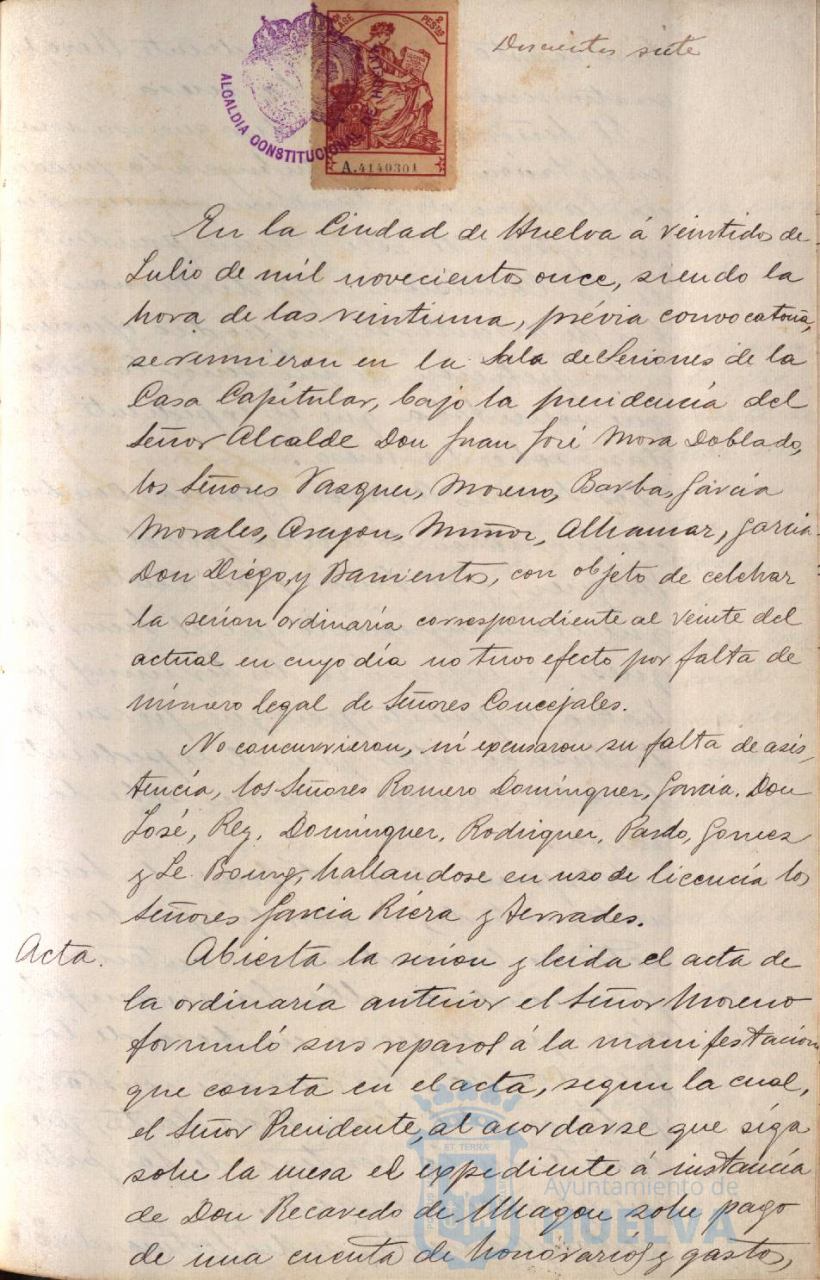 Doscientos siete
ALCALDIA CONSTITUCIONAL DE HUELVA
2 PESETAS
A.4140301
En la Ciudad de Huelva á veintidos de
Julio de mil novecientos once, siendo la
hora de las veintiuna, prévia convocatoria,
se reunieron en la Sala de Sesiones de la
Casa Capítular, bajo la presidencia del
Señor Alcalde Don Juan José Mora Doblado,
los Señores Vazquez, Moreno, Barba, García
Morales, Aragon, Muñoz, Alhamar, García
Don Diégo, y Barrientos, con objeto de celebrar
la sesion ordinaría correspondiente al veinte del
actual en cuyo día no tuvo efecto por falta de
número legal de Señores Concejales.
No concurrieron, ni excusaron su falta de asis,
tencía, los Señores Romero Domínguez, García, Don
José, Rey, Domínguez, Rodriguez, Pardo, Gomez
y Le Bourg, hallandose en uso de licencía los
Señores García Riéra y Terrades.
Acta. Abierta la sesion y leida el acta de
la ordinaría anterior el Señor Moreno
formuló sus reparos á la manifestacion
que consta en el acta, segun la cual,
el Señor Presidente, al acordarse que siga
sobre la mesa el expediente á instancía
de Don Recaredo de Uhagon sobre pago
de una cuenta de honorarios y gastos,
Ayuntamiento de
HUELVA